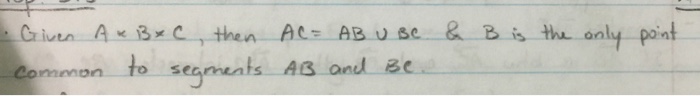 · Given A * B * C, then AC = AB ∪ BC & B is the only point
common to segments AB and BC.